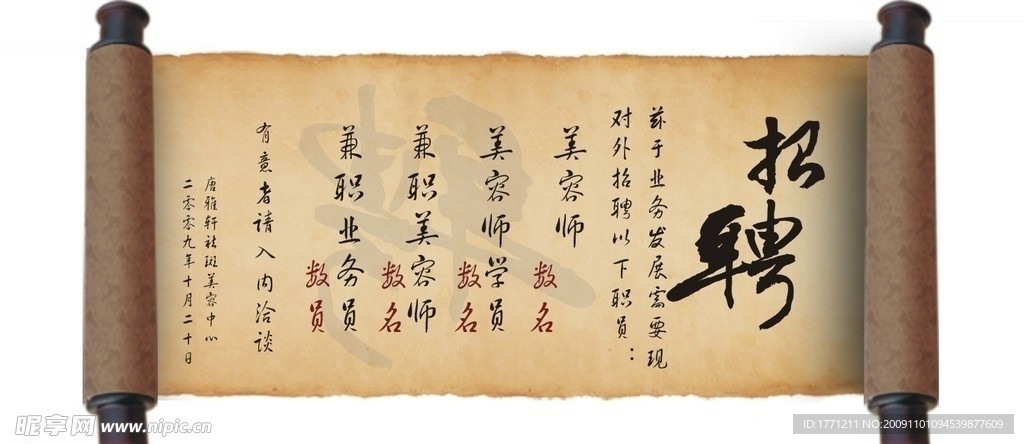 招聘
兹于业务发展需要现
对外招聘以下职员：
美容师
数名
美容师学员
数名
兼职美容师
数名
兼职业务员
数员
有意者请入内洽谈
唐雅轩祛斑美容中心
二零零九年十月二十日
昵享网 www.nipic.cn
ID:1771211 NO:20091101094539877609